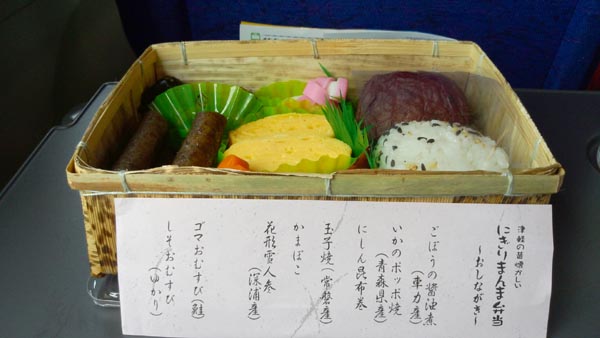 津軽の昔懐かしい
にぎりまんま弁当
～おしながき～
ごぼうの醤油煮
(車力産)
いかのポッポ焼
(青森県産)
にしん昆布巻
玉子焼(常磐産)
かまぼこ
花形雪人参
(深浦産)
ゴマおむすび(鮭)
しそおむすび
(ゆかり)